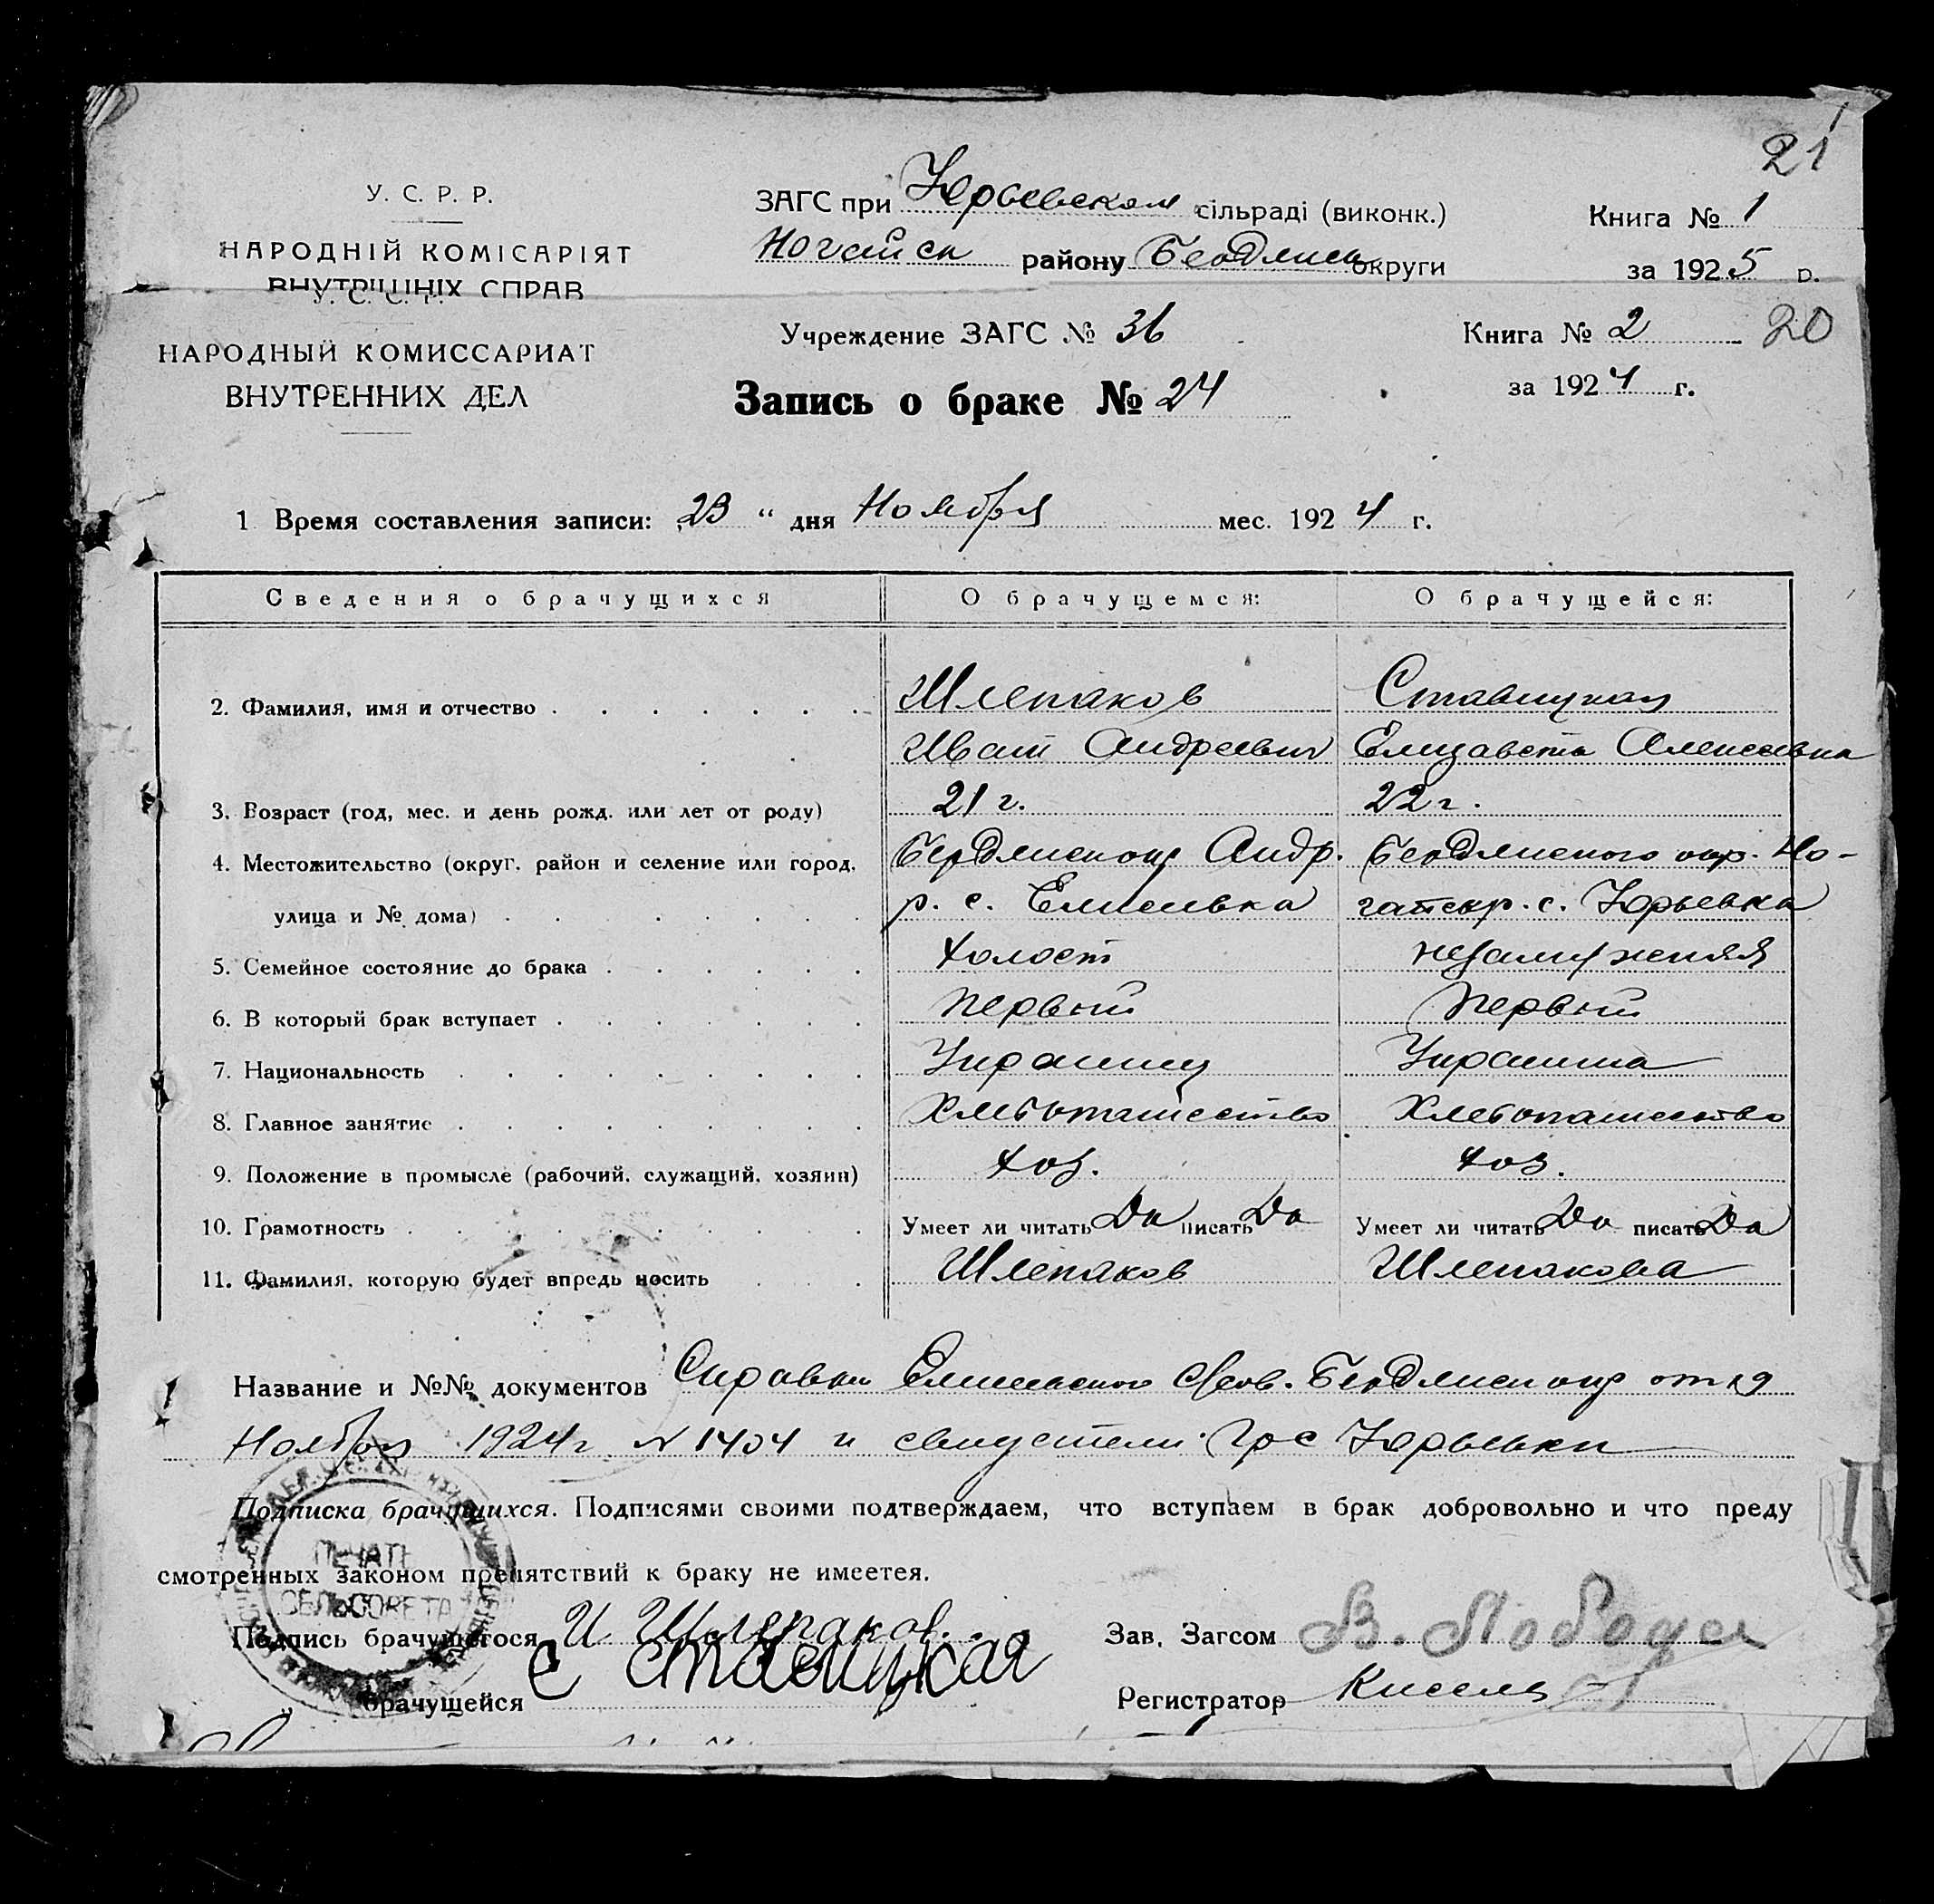 21
У. С. Р. Р.
НАРОДНІЙ КОМІСАРІЯТ
ВНУТРІШНІХ СПРАВ
ЗАГС при Юрьевском сільраді (виконк.)
Ногайск району Бердянск округи
Книга № 1
за 1925 р.
У. С. С. Р.
НАРОДНЫЙ КОМИССАРИАТ
ВНУТРЕННИХ ДЕЛ
Учреждение ЗАГС № 36
Книга № 2 20
за 1924 г.
Запись о браке № 24
1 Время составления записи: „23 “ дня Ноября мес. 1924 г.
Сведения о брачущихся О брачущемся: О брачущейся:
2. Фамилия, имя и отчество Шлепаков Ставицкая
Иван Андреевич Елизавета Алексеевна
3. Возраст (год, мес. и день рожд. или лет от роду) 21 г. 22 г.
4. Местожительство (округ, район и селение или город, Бердянск окр Андр. Бердянского окр. Но-
улица и № дома) р. с. Елисеевка гайск р. с. Юрьевка
5. Семейное состояние до брака холост незамужняя
6. В который брак вступает первый первый
7. Национальность Украинец Украинка
8. Главное занятие Хлебопашество Хлебопашество
9. Положение в промысле (рабочий, служащий, хозяин) хоз. хоз.
10. Грамотность Умеет ли читать Да писать Да Умеет ли читать Да писать Да
11. Фамилия, которую будет впредь носить Шлепаков Шлепакова
Название и №№ документов Справки Елисеевского Бердянск окр от 19
Ноября 1924 г N 1404 и свидетели гр с Юрьевки
Подписка брачущихся. Подписями своими подтверждаем, что вступаем в брак добровольно и что преду
смотренных законом препятствий к браку не имеетея.
ПЕЧАТЬ
СЕЛЬСОВЕТА
Подпись брачущегося И Шлепаков.
Зав. Загсом В. Лобода
„ брачущейся Е Ставицкая
Регистратор Кисель